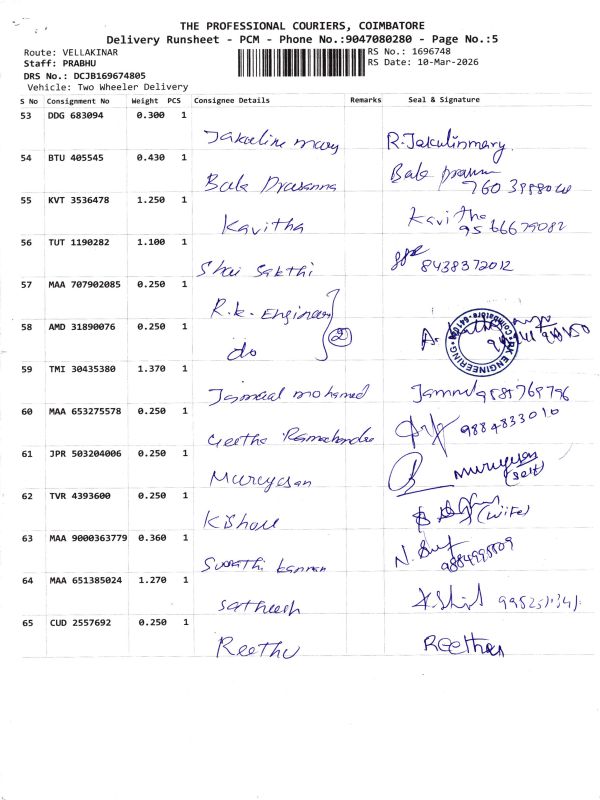 THE PROFESSIONAL COURIERS, COIMBATORE
Delivery Runsheet - PCM - Phone No.:9047080280 - Page No.:5
Route: VELLAKINAR RS No.: 1696748
Staff: PRABHU RS Date: 10-Mar-2026
DRS No.: DCJB169674805
Vehicle: Two Wheeler Delivery
S No Consignment No Weight PCS Consignee Details Remarks Seal & Signature
53 DDG 683094 0.300 1
Jakoeline mary R. Jakulinmary
54 BTU 405545 0.430 1
Bala Prasanna Bala
55 KVT 3536478 1.250 1
Kavitha Kavitha
9566679082
56 TUT 1190282 1.100 1
Shri Sakthi 8438372012
57 MAA 707902085 0.250 1
R.k. Engineer
58 AMD 31890076 0.250 1
do 2
RK ENGINEERING
59 TMI 30435380 1.370 1
Jamaal mohamed 9585769796
60 MAA 653275578 0.250 1
Geetha Ramachandra 9884833010
61 JPR 503204006 0.250 1
Murugesan murugesan
(self)
62 TVR 4393600 0.250 1
Kishore (wife)
63 MAA 9000363779 0.360 1
Swathi kannan
64 MAA 651385024 1.270 1
Satheesh
65 CUD 2557692 0.250 1
Reethu